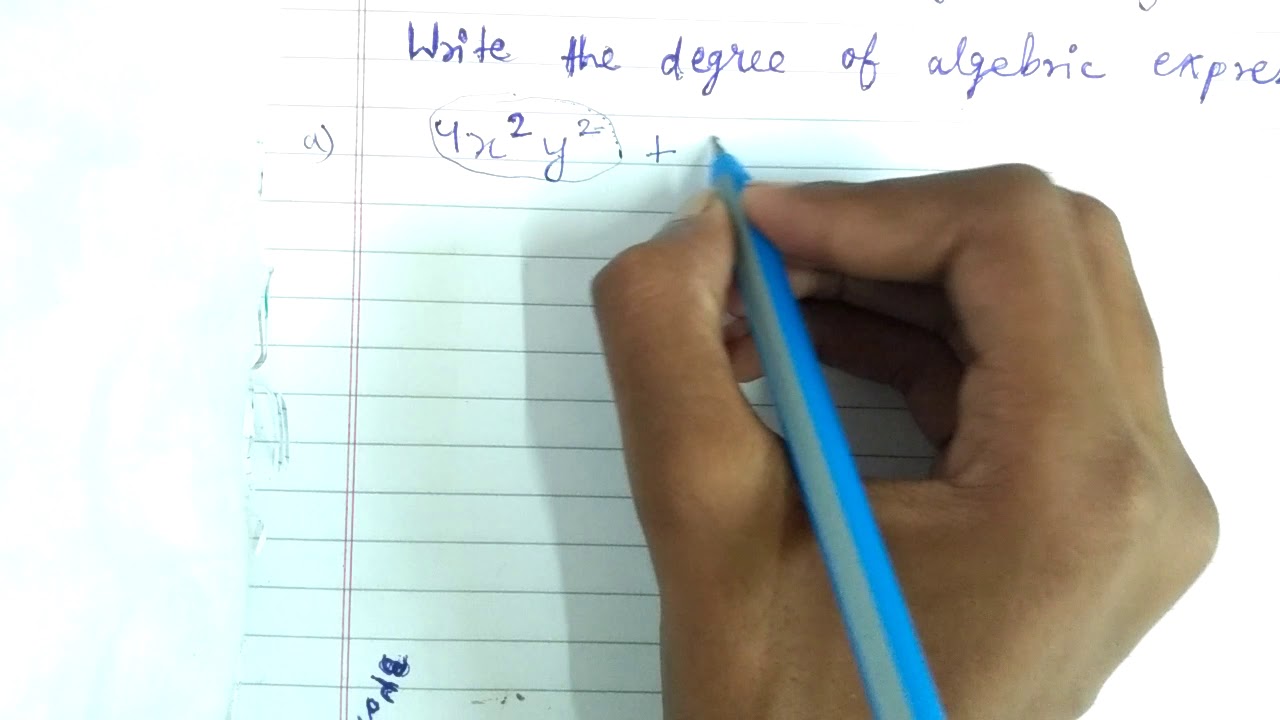 Write the degree of algebric expres
a) 4x²y² +